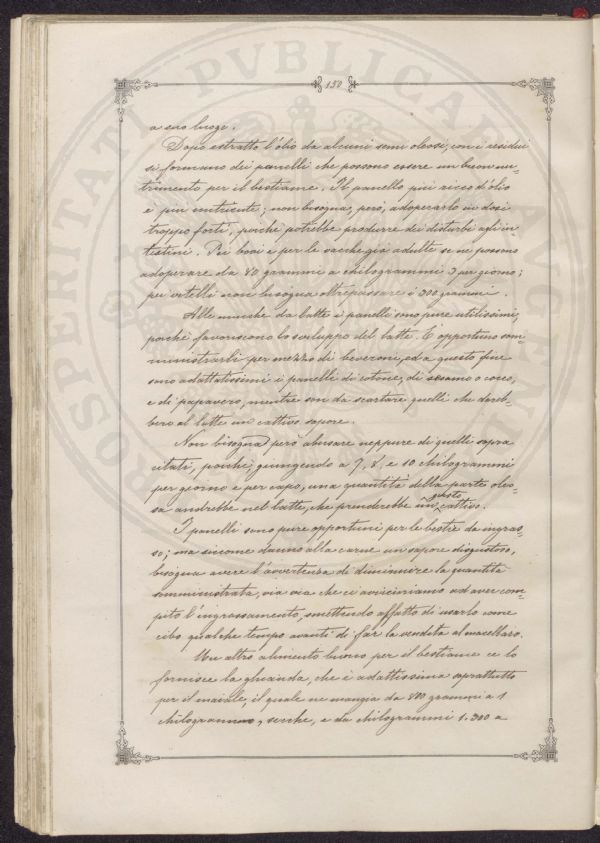 150
a suo luogo.
Dopo estratto l'olio da alcuni semi oleosi, con i residui
si formano dei panelli che possono essere un buon nu-
trimento per il bestiame. Il panello più ricco d'olio
è più nutriente; non bisogna, però, adoperarlo in dosi
troppo forti, poichè potrebbe produrre dei disturbi agli in-
testini. Pei bovi e per le vacche già adulte se ne possono
adoperare da 80 grammi a chilogrammi 3 per giorno;
pei vitelli non bisogna oltrepassare i 300 grammi.
Alle mucche da latte i panelli sono pure utilissimi,
poichè favoriscono lo sviluppo del latte. È opportuno som-
ministrarli per mezzo di beveroni, ed a questo fine
sono adattatissimi i panelli di cotone, di sesamo o cocco,
e di papavero, mentre son da scartare quelli che dareb-
bero al latte un cattivo sapore.
Non bisogna però abusare neppure di quelli sopra
citati, poichè, giungendo a 7, 8, e 10 chilogrammi
per giorno e per capo, una quantità della parte oleo-
sa andrebbe nel latte, che prenderebbe un gusto cattivo.
I panelli sono pure opportuni per le bestie da ingras-
so; ma siccome danno alla carne un sapore disgustoso,
bisogna avere l'avvertenza di diminuire la quantità
somministrata, via via che ci avviciniamo ad aver com-
pito l'ingrassamento, smettendo affatto di usarlo come
cibo qualche tempo avanti di far la vendita al macellaro.
Un altro alimento buono per il bestiame ce lo
fornisce la ghianda, che è adattissima soprattutto
per il maiale, il quale ne mangia da 800 grammi a 1
chilogrammo, secche, e da chilogrammi 1.300 a
PROSPERITATI PVBLICAE AVGENDAE